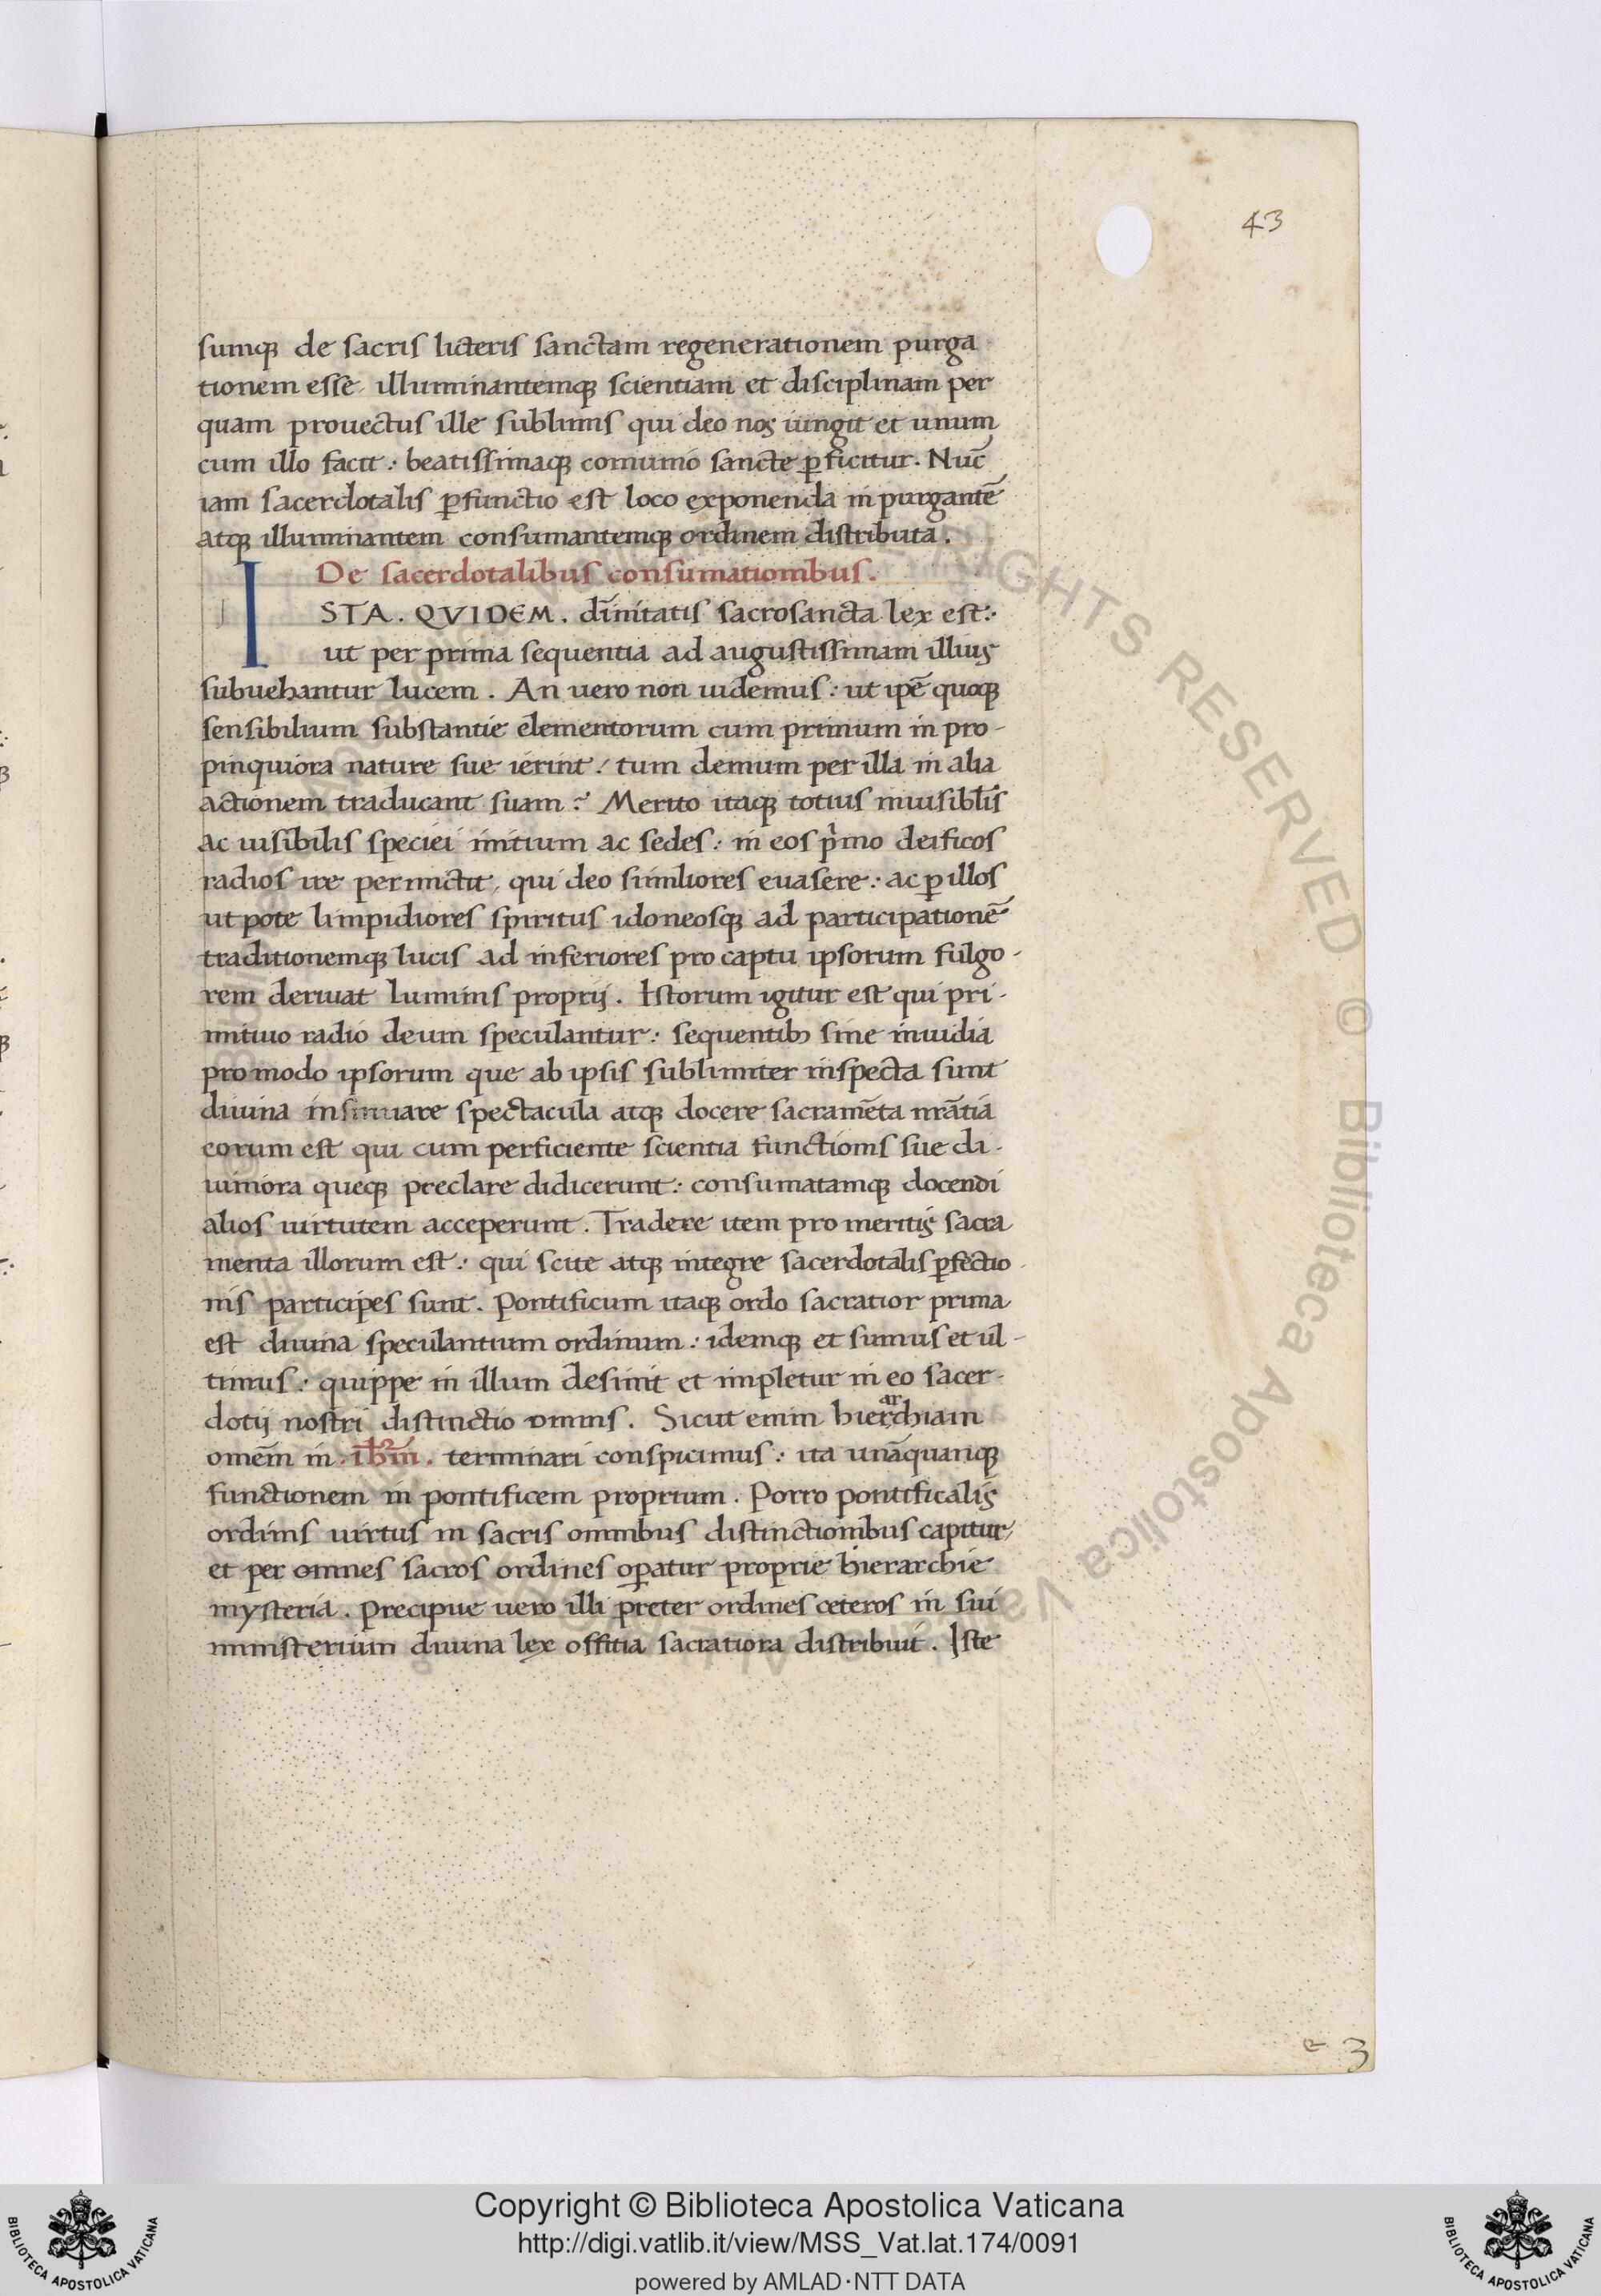 43
sumqꝫ de sacris licteris sanctam regenerationem purga
tionem esse illuminantemqꝫ scientiam et disciplinam per
quam prouectus ille sublimis qui deo nos iungit et unum
cum illo facit : beatissimaqꝫ comunio sancte ꝑficitur. Nuc̄
iam sacerdotalis ꝑfunctio est loco exponenda in purgantē
atqꝫ illuminantem consumantemqꝫ ordinem distributa .
De sacerdotalibus consumationibus .
ISTA . QVIDEM . diūnitatis sacrosancta lex est :
ut per prima sequentia ad augustissimam illius
subuehantur lucem . An uero non uidemus : ut ip̄e quoqꝫ
sensibilium substantie elementorum cum primum in pro-
pinquiora nature sue ierint / tum demum per illa in alia
actionem traducant suam ? Merito itaqꝫ totius inuisibl̄is
ac uisibilis speciei initium ac sedes : in eos pͥmo deificos
radios ire permictit , qui deo similiores euasere : ac ꝑ illos
ut pote limpidiores spiritus idoneosqꝫ ad participationē
traditionemqꝫ lucis ad inferiores pro captu ipsorum fulgo-
rem deriuat luminis proprij . Istorum igitur est qui pri-
mitiuo radio deum speculantur : sequentibꝫ sine inuidia
pro modo ipsorum que ab ipsis sublimiter inspecta sunt
diuina insinuare spectacula atqꝫ docere sacramēta nrātiā
eorum est qui cum perficiente scientia functionis sue di-
uiniora queqꝫ preclare didicerunt : consumatamqꝫ docendi
alios uirtutem acceperunt . Tradere item pro meritis sacra
menta illorum est : qui scite atqꝫ integre sacerdotalis ꝑfectio-
nis participes sunt . Pontificum itaqꝫ ordo sacratior prima
est diuina speculantium ordinum : idemqꝫ et sumus et ul-
timus : quippe in illum desinit et impletur in eo sacer-
dotij nostri distinctio omnis . Sicut enim hierarchiam
omēm in . ih̄m . terminari conspicimus : ita unāquanqꝫ
functionem in pontificem proprium . Porro pontificalis
ordinis uirtus in sacris omnibus distinctionibus capitur,
et per omnes sacros ordines oꝑatur proprie hierarchie
mysteria . Precipue uero illi preter ordines ceteros in sui
ministerium diuina lex offitia sacratiora distribuit . Iste
e 3
RIGHTS RESERVED © Biblioteca Apostolica Va
Copyright © Biblioteca Apostolica Vaticana
http://digi.vatlib.it/view/MSS_Vat.lat.174/0091
powered by AMLAD·NTT DATA
BIBLIOTECA APOSTOLICA VATICANA
BIBLIOTECA APOSTOLICA VATICANA